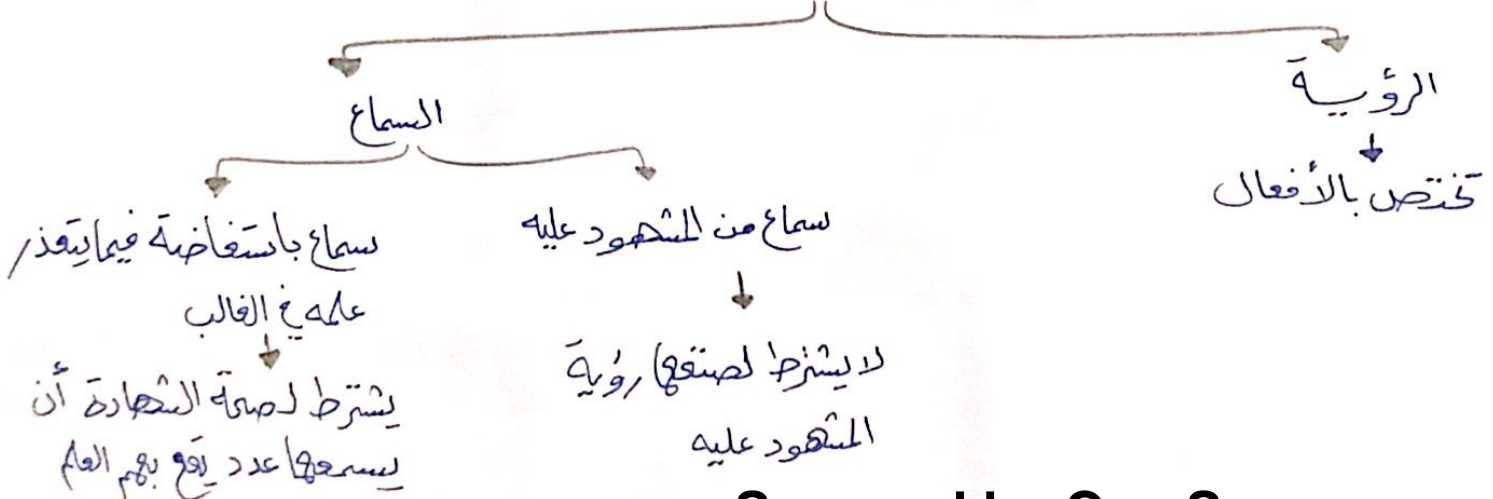 الرؤية
تختص بالأفعال
السماع
سماع من المشهود عليه
لا يشترط لصحتها رؤية
المشهود عليه
سماع باستفاضة فيما يتعذر
علمه في الغالب
يشترط لصحة الشهادة أن
يسمعها عدد يقع بهم العلم